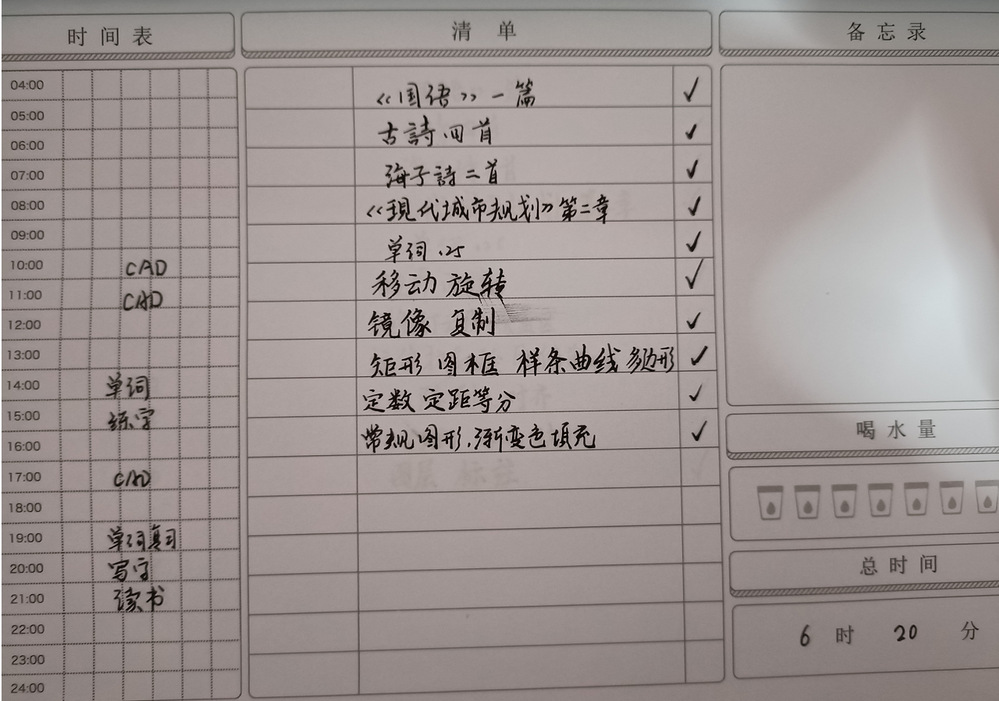 时间表
清单
备忘录
04:00
05:00
06:00
07:00
08:00
09:00
10:00 CAD
11:00 CAD
12:00
13:00
14:00 单词
15:00 练字
16:00
17:00 CAD
18:00
19:00 单词复习
20:00 写字
21:00 读书
22:00
23:00
24:00
《国语》一篇 ✓
古詩四首 ✓
海子詩二首 ✓
《現代城市规划》第二章 ✓
单词 25 ✓
移动 旋转 ✓
镜像 复制 ✓
矩形 图框 样条曲线 多边形 ✓
定数 定距等分 ✓
常规图形,渐变色填充 ✓
喝水量
总时间
6 时 20 分